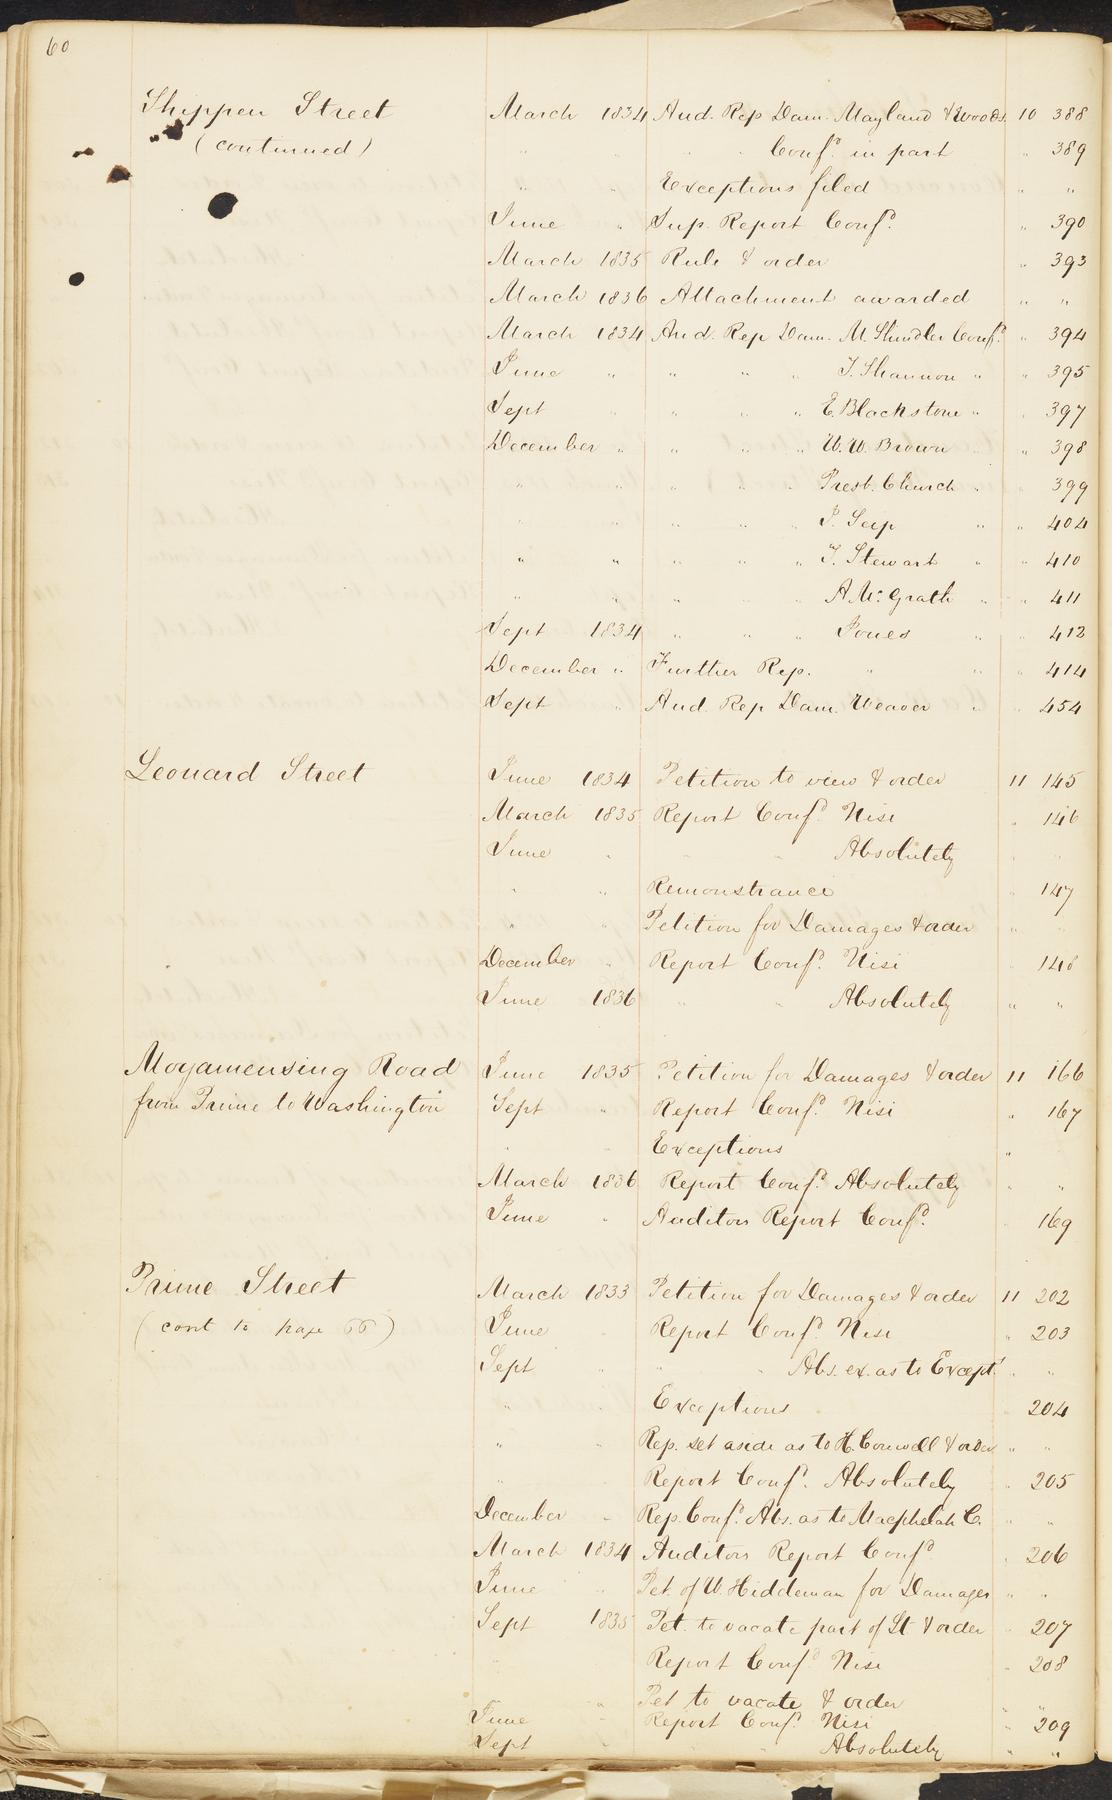 60
Shippen Street March 1834 Aud. Rep Dam. Mayland & Woods. 10 388
(continued) " " " Conf.d in part " 389
" " Exceptions filed " "
June " Sup. Report Conf.d " 390
March 1835 Rule & order " 393
March 1836 Attachment awarded " "
March 1834 Aud. Rep Dam. M. Shindler Conf.d " 394
June " " " " T. Shannon " " 395
Sept " " " " E. Blackstone " " 397
December " " " " W. W. Brown " " 398
" " " " " Presb. Church " " 399
" " " " " P. Seip " " 404
" " " " " T. Stewart " " 410
" " " " " A. Mc.Grath " " 411
Sept 1834 " " " Jones " " 412
December " Further Rep. " " " 414
Sept " Aud. Rep Dam. Weaver " " 454
Leonard Street June 1834 Petition to view & order 11 145
March 1835 Report Conf.d Nisi " 146
June " " " Absolutely " "
" " Remonstrance " 147
" " Petition for Damages & order " "
December " Report Conf.d Nisi 148
June 1836 " " Absolutely " "
Moyamensing Road June 1835 Petition for Damages & order 11 166
from Prime to Washington Sept " Report Conf.d Nisi " 167
" Exceptions "
March 1836 Report Conf.d Absolutely " "
June " Auditors Report Conf.d " 169
Prime Street March 1833 Petition for Damages & order 11 202
(cont to page 66) June " Report Conf.d Nisi " 203
Sept " " " Abs. ex. as to Except.s " "
" " Exceptions " 204
" " Rep. set aside as to H. Conwell & order " "
" " Report Conf.d Absolutely " 205
December " Rep. Conf.d Abs. as to Macphelah C. " "
March 1834 Auditors Report Conf.d " 206
June " Pet. of W. Hiddeman for Damages " "
Sept 1835 Pet. to vacate part of St & order " 207
" Report Conf.d Nisi " 208
" Pet to vacate & order " "
June " Report Conf.d Nisi " 209
Sept " " " Absolutely " "